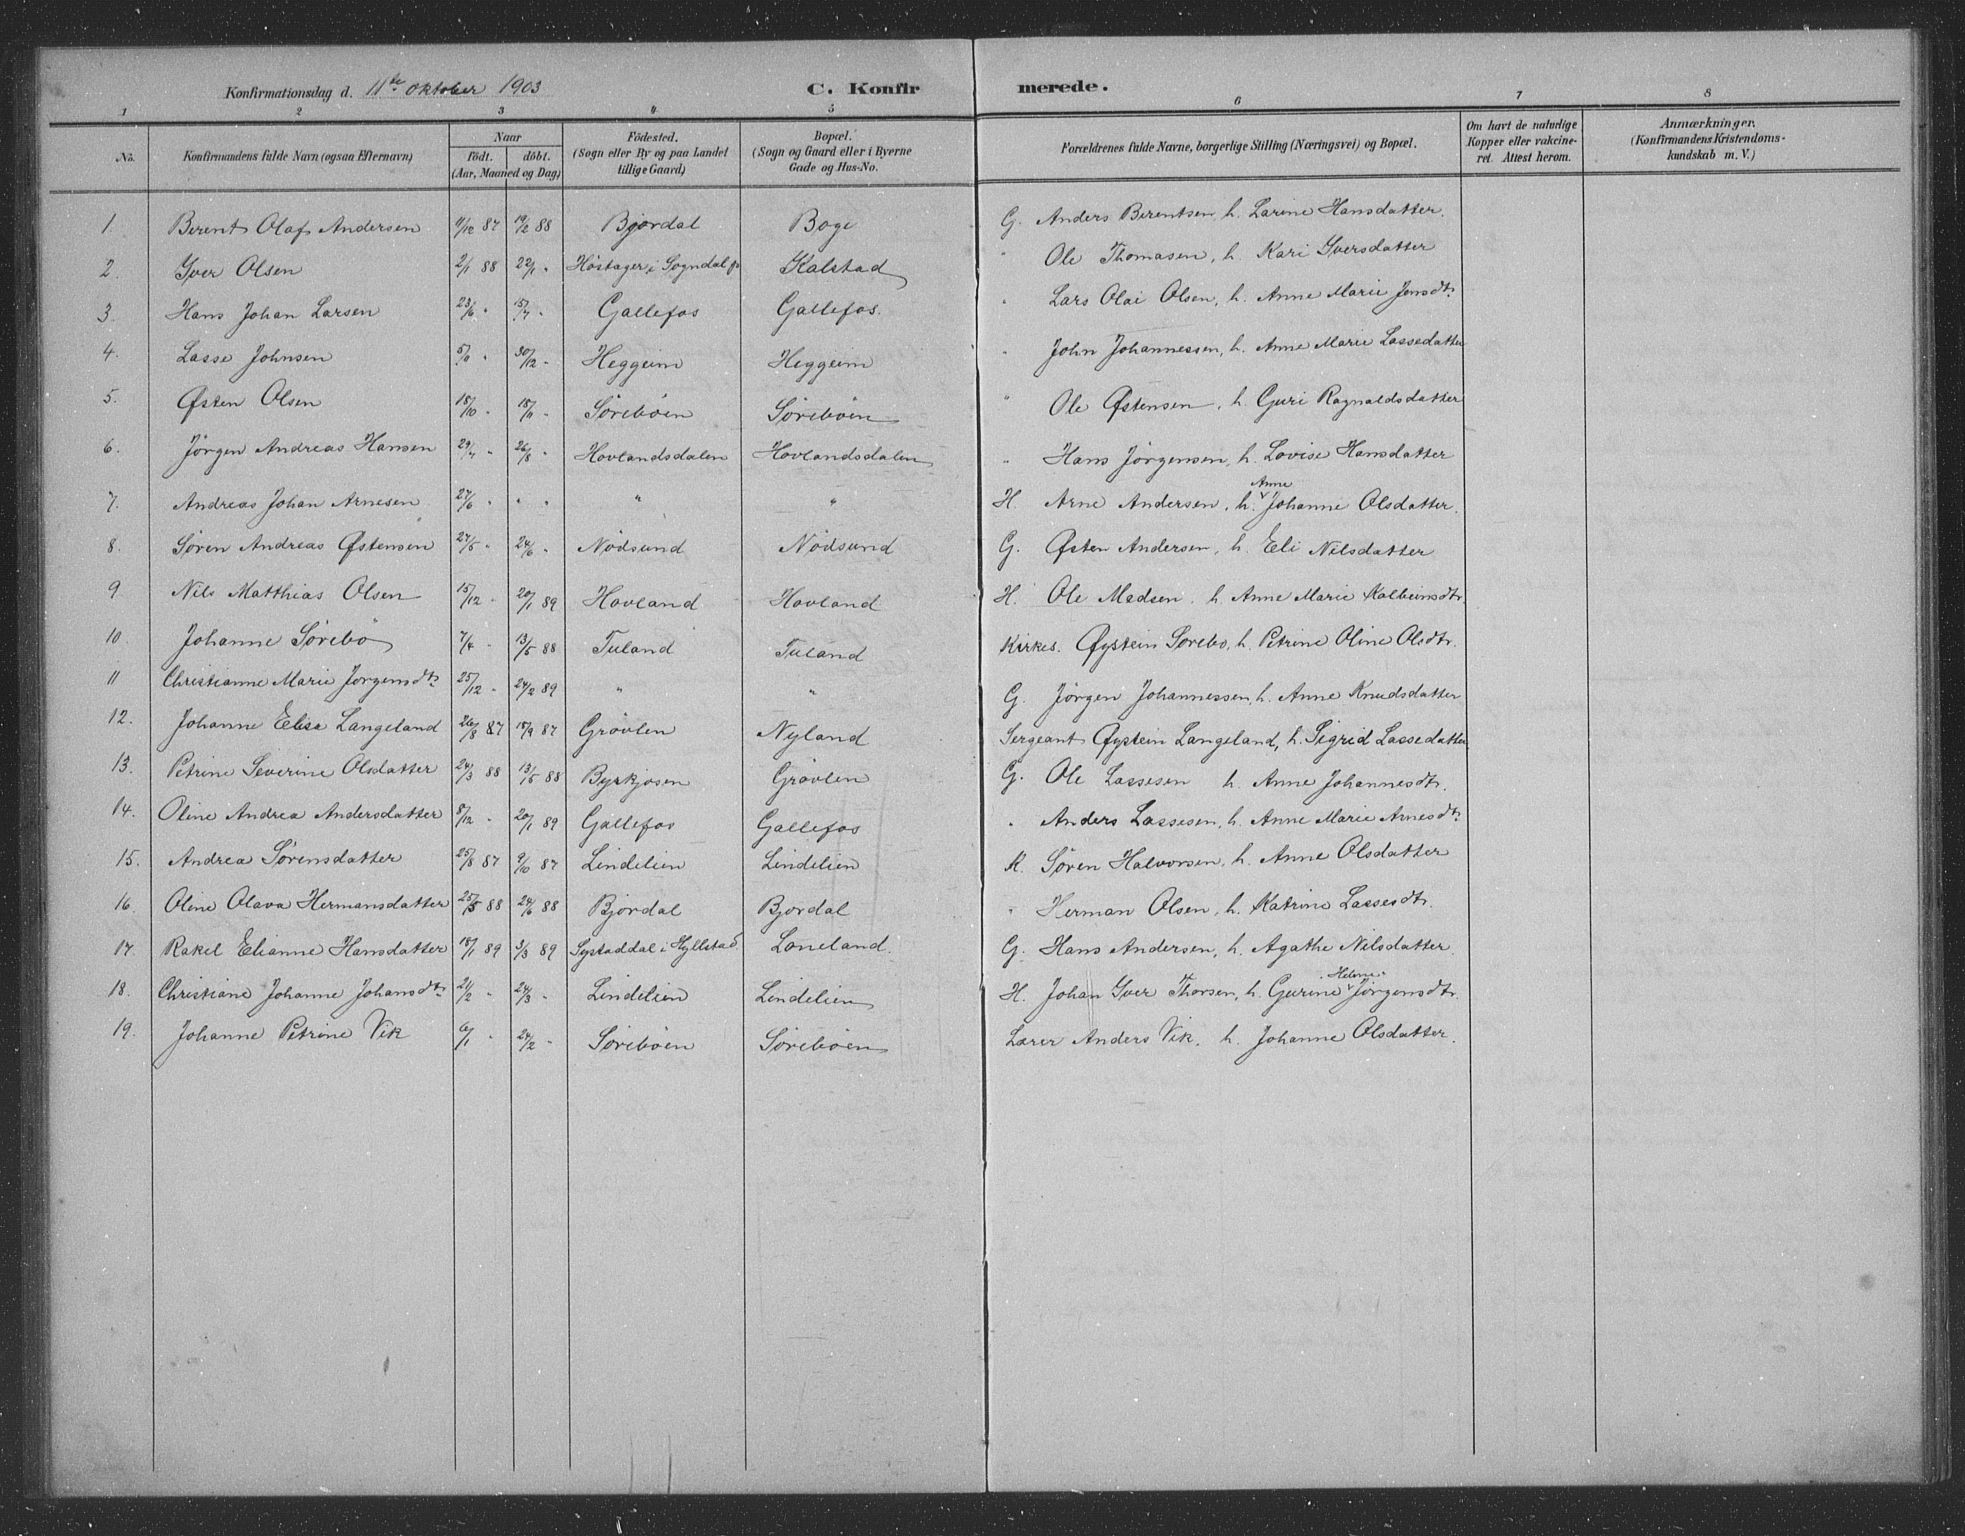 Konfirmationsdag d. 11te Oktober 1903 C. Konfirmerede.
1 2 3 4 5 6 7 8
No. Konfirmandens fulde Navn (ogsaa Efternavn) Naar födt. döbt. (Aar, Maaned og Dag) Födested. (Sogn eller By og paa Landet tillige Gaard) Bopæl. (Sogn og Gaard eller i Byerne Gade og Hus-No. Forældrenes fulde Navne, borgerlige Stilling (Næringsvei) og Bopæl. Om havt de naturlige Kopper eller vakcineret. Attest herom. Anmærkninger. (Konfirmandens Kristendomskundskab m. V.)
1. Berent Olaf Andersen 11/12 87 19/2 88 Bjordal Boge G. Anders Berentsen, h. Larine Hansdatter.
2. Iver Olsen 2/1 88 22/1 " Höstager i Sogndal Kalstad " Ole Thomasen, h. Kari Iversdatter
3. Hans Johan Larsen 23/6 " 15/7 " Gallefos Gallefos. " Lars Olai Olsen, h. Anne Marie Jensdtr.
4. Lasse Johnsen 5/11 " 30/12 " Heggeim Heggeim " John Johannessen, h. Anne Marie Lassedatter
5. Østen Olsen 18/10 " 18/11 " Söreböen Söreböen " Ole Østensen, h. Guri Ragnaldsdatter
6. Jørgen Andreas Hansen 29/7 " 26/8 " Hovlandsdalen Hovlandsdalen " Hans Jørgensen, h. Lovise Hansdatter
7. Andreas Johan Arnesen 27/6 " " " " " H. Arne Andersen, h. Anne Johanne Olsdatter.
8. Søren Andreas Østensen 27/5 " 24/6 " Nödsund Nödsund G. Østen Andersen, h. Eli Nilsdatter
9. Nils Matthias Olsen 15/12 " 20/1 89 Hovland Hovland H. Ole Madsen. h. Anne Marie Kolbeinsdtr.
10. Johanne Sørebö 7/4 " 13/5 88 Tuland Tuland Kirkes. Øystein Sørebo, h. Petrine Oline Olsdtr.
11 Christianne Marie Jørgensdtr. 25/12 " 24/2 89 " " G. Jørgen Johannessen, h. Anne Knudsdatter
12. Johanne Elise Langeland 26/8 87 18/9 87 Grövlen Nyland Sergeant Øystein Langeland, h. Sigrid Lassedatter
13. Petrine Severine Olsdatter 24/3 88 13/5 88 Byrkjosen Grövlen G. Ole Lassesen h. Anne Johannesdtr.
14. Oline Andrea Andersdatter 8/12 " 20/1 89 Gallefos Gallefos " Anders Lassesen, h. Anne Marie Arnesdtr.
15. Andrea Sørensdatter 25/8 87 9/10 87 Lindelien Lindelien K. Søren Halvorsen, h. Anne Olsdatter
16. Oline Olava Hermansdatter 25/5 88 24/6 88 Bjordal Bjordal " Herman Olsen, h. Katrine Lassesdtr.
17. Rakel Elianne Hansdatter 18/1 89 3/3 89 Systaddal i Hyllestad Loneland. G. Hans Andersen, h. Agathe Nilsdatter
18. Christiane Johanne Johansdtr. 21/2 " 24/3 " Lindelien Lindelien H. Johan Iver Thorsen, h. Gurine Helene Jørgensdtr.
19. Johanne Petrine Vik 6/1 " 24/2 " Söreböen Söreböen Lærer Anders Vik. h. Johanne Olsdatter.